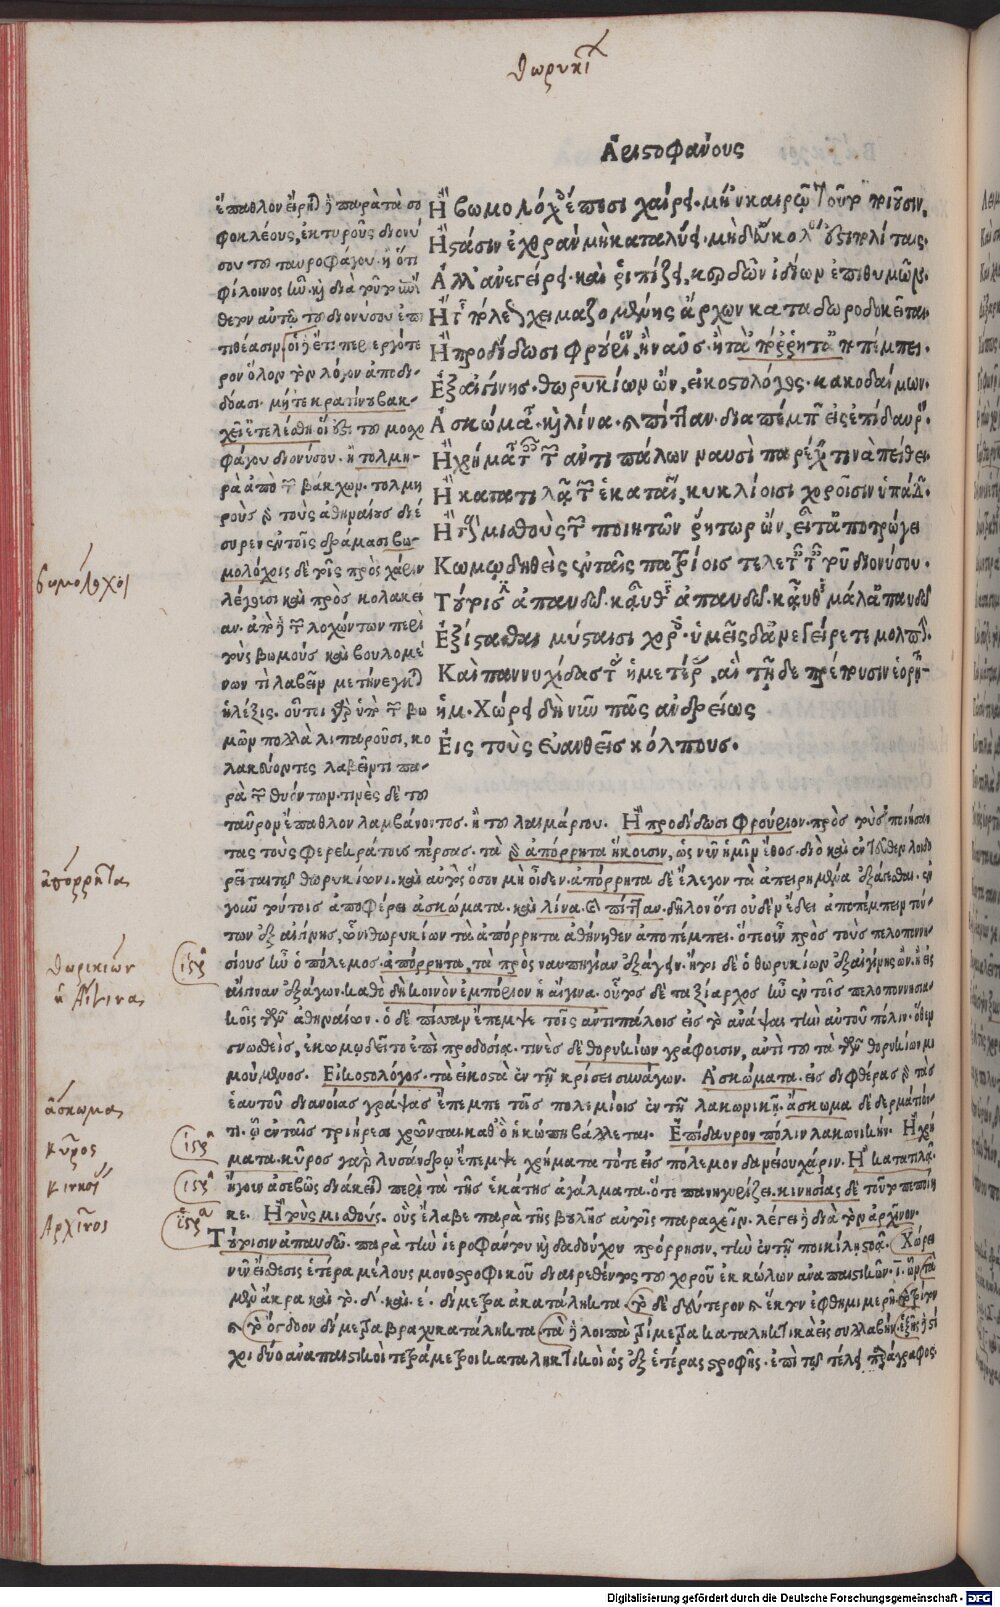 θωρυκί
Ἀριστοφάνους
Ἢ βωμολόχοις ἔπεσι χαίρει, μὴν καιρῷ τοῦτο ποιοῦσιν,
Ἢ στάσιν ἐχθρὰν μὴ καταλύει, μηδ' εὔκολός ἐστι πολίταις.
Ἀλλ' ἀνεγείρει καὶ ῥιπίζει, κερδῶν ἰδίων ἐπιθυμῶν.
Ἢ τῆς πόλεως χειμαζομένης ἄρχων καταδωροδοκεῖται.
Ἢ προδίδωσι φρούριον, ἢ ναῦς, ἢ τἀπόρρητα ἀποπέμπει.
Ἐξ αἰγίνης, θωρυκίων ὢν, εἰκοστολόγος κακοδαίμων.
Ἀσκώματα, καὶ λίνα, καὶ πίτταν, διαπέμπων εἰς ἐπίδαυρον
Ἢ χρήματα ταῖς τῶν ἀντιπάλων ναυσὶ παρέχειν τινὰ πείθει.
Ἢ κατατιλᾷ τῶν ἑκαταίων, κυκλίοισι χοροῖσιν ὑπᾴδων.
Ἢ τοὺς μισθοὺς τῶν ποιητῶν ῥήτωρ ὢν, εἶτ' ἀποτρώγει
Κωμῳδηθεὶς ἐν ταῖς πατρίοις τελεταῖς ταῖς τοῦ διονύσου.
Τούτοις ἀπαυδῶ, καὖθις ἀπαυδῶ, καὖθις μάλα ἀπαυδῶ
Ἐξίστασθαι μύσταισι χοροῖς. ὑμεῖς δ' ἀνεγείρετε μολπὴν.
Καὶ παννυχίδας τὰς ἡμετέρας, αἳ τῇδε πρέπουσιν ἑορτῇ.
ἡμ. Χώρει δὴ νῦν πᾶς ἀνδρείως
Εἰς τοὺς εὐανθεῖς κόλπους.
ἔπαθλον εἴρηται ἢ παρὰ τὰ σο
φοκλέους, ἐκ τυροῦς διονύ
σου τοῦ ταυροφάγου. ἢ ὅτι
φίλοινος ἦν καὶ διὰ τοῦτο τὴν
θερν αὐτῷ τοῦ διονύσου ἐπι
τιθέασιν. οἱ δὲ ἔτι περιεργότε
ρον ὅλον τὸν λόγον ἀποδι
δόασι. μήτε κρατίνου βακ
χεῖα ἐτελέσθη οἱ ἐξ τοῦ μοσχο
φάγου διονύσου. ἢ τολμη
ρὰ ἀπὸ τῶν βάκχων. τολμη
ροὺς γὰρ τοὺς ἀθηναίους διέ
συρεν ἐν τοῖς δράμασι. βω
μολόχοις δὲ τοῖς πρὸς χάριν
λέγουσι καὶ πρὸς κολακεί
αν. ἀπὸ δὲ τῶν λοχώντων περὶ
τοὺς βωμοὺς καὶ βουλομέ
νων τι λαβεῖν μετήνεγκται
ἡ λέξις. οὗτοι γὰρ ὑπὸ τῶν βω
μῶν πολλὰ λιπαροῦσι, κο
λακεύοντες λαβεῖν τι πα
ρὰ τῶν θυόντων. τινὲς δὲ τοῦ
ταῦρον ἔπαθλον λαμβάνοντος. ἢ τοῦ λαιμάργου. Ἢ προδίδωσι φρούριον. πρὸς τοὺς ποιήσαν
τας τοὺς φερεκράτους πέρσας. τὰ γὰρ ἀπόρρητα ἤκουσιν, ὡς νῦν ἡμῖν ἔθος. διὸ καὶ ἐντεῦθεν λοιδο
ρεῖται τῷ θωρυκίωνι. καὶ αὐτὸς ὅσον μὴ οἶδεν. ἀπόρρητα δὲ ἔλεγον τὰ ἀπειρημένα ἐξάγεσθαι. ἐν
γοῦν τούτοις ἀποφέρει ἀσκώματα. καὶ λίνα. καὶ πίτταν. δηλονότι οὐδὲν ἔδει ἀποπέμπειν τού
των ἐξ αἰγίνης, ὧν θωρυκίων τὰ ἀπόρρητα ἀθήνηθεν ἀποπέμπει. ὅτε οὖν πρὸς τοὺς πελοπονη
σίους ἦν ὁ πόλεμος. ἀπόρρητα, τὰ πρὸς ναυπηγίαν ἐξάγειν. ἤτοι δὲ ὁ θωρυκίων ἐξ αἰγίνης ὢν. ἢ εἰς
αἴγιναν ἐξάγων. καθὸ δὴ κοινὸν ἐμπόριον ἡ αἴγινα. οὗτος δὲ ταξίαρχος ἦν ἐν τοῖς πελοποννησια
κοῖς τῶν ἀθηναίων. ὁ δὲ πίσσαν ἔπεμψε τοῖς ἀντιπάλοις εἰς τὸ ἀνάψαι τὴν αὐτοῦ πόλιν. ὅθεν
γνωσθεὶς, ἐκωμῳδεῖτο ἐπὶ προδοσίᾳ. τινὲς δὲ θορυκίων γράφουσιν, ἀντὶ τοῦ τὰ τῶν θορυκίων μι
μούμενος. Εἰκοστολόγος. τὰ εἰκοστὰ ἐν τῇ κρίσει συνάγων. Ἀσκώματα. εἰς διφθέρας γὰρ τὰς
ἑαυτοῦ διανοίας γράψας ἔπεμπε τοῖς πολεμίοις ἐν τῇ λακωνικῇ. ἄσκωμα δὲ δερμάτιόν
τι. ᾧ ἐν ταῖς τριήρεσι χρῶνται καθ' ὃ ἡ κώπη βάλλεται. Ἐπίδαυρον πόλιν λακωνικήν. Ἢ χρή
ματα. κῦρος γὰρ λυσάνδρῳ ἔπεμψε χρήματα τότε εἰς πόλεμον δαρείου χάριν. Ἢ καταπλᾷ.
ἤγουν ἀσεβῶς διάκειται περὶ τὰ τῆς ἑκάτης ἀγάλματα. ὅτε πανηγυρίζει. κινησίας δὲ τοῦτο πεποίη
κε. Ἢ τοὺς μισθούς. οὓς ἔλαβε παρὰ τῆς βουλῆς αὐτοῖς παρασχεῖν. λέγει δὲ διὰ τὸν ἀρχῖνον.
Τούτοισιν ἀπαυδῶ. παρὰ τὴν ἱεροφάντου καὶ δαδούχου πρόρρησιν, τὴν ἐν τῇ ποικίλῃ στοᾷ. Χώρει
νῦν. εἴσθεσις ἑτέρα μέλους μονοστροφικοῦ διαιρεθέντος τοῦ χοροῦ ἐκ κώλων ἀναπαιστικῶν. ι. ὧν τὰ
μὲν ἄκρα καὶ τὸ. δ. καὶ. ε. δίμετρα ἀκατάληκτα. τὸ δὲ δεύτερον καὶ ἕκτον ἐφθημιμερῆ. τὸ τρίτον
καὶ τὸ ὄγδοον δίμετρα βραχυκατάληκτα. τὰ δὲ λοιπὰ τρίμετρα καταληκτικὰ εἰς συλλαβήν. ἑξῆς δὲ στί
χοι δύο ἀναπαιστικοὶ τετράμετροι καταληκτικοὶ ὡς ἐξ ἑτέρας στροφῆς. ἐπὶ τῷ τέλει παράγραφος.
βωμολόχοι
ἀπόρρητα
θωρικίων
ἡ Αἴγινα
ἄσκωμα
κῦρος
κινησί
Ἀρχῖνος
ἱστρα
ἱστρα
ἱστρα
ἱστρα
Digitalisierung gefördert durch die Deutsche Forschungsgemeinschaft - DFG